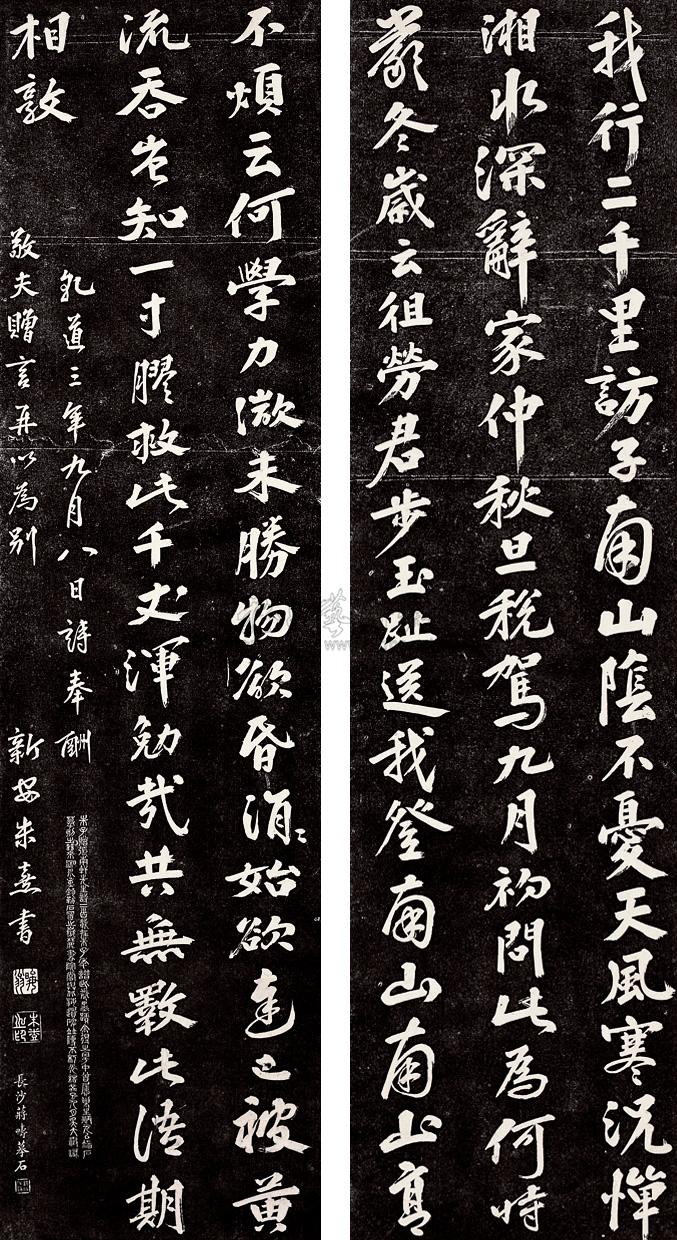 我行二千里訪子南山陰不憂天風寒況憚
湘水深辭家仲秋旦稅駕九月初問此為何時
嚴冬歲云徂勞君步玉趾送我登南山南山高
不煩云何學力微未勝物欲昏涓〻始欲達已被黃
流吞豈知一寸膠救此千丈渾勉哉共無斁此語期
相敦
乾道三年九月八日詩奉酬
敬夫贈言再以為別 新安朱熹書
長沙蔣摹石